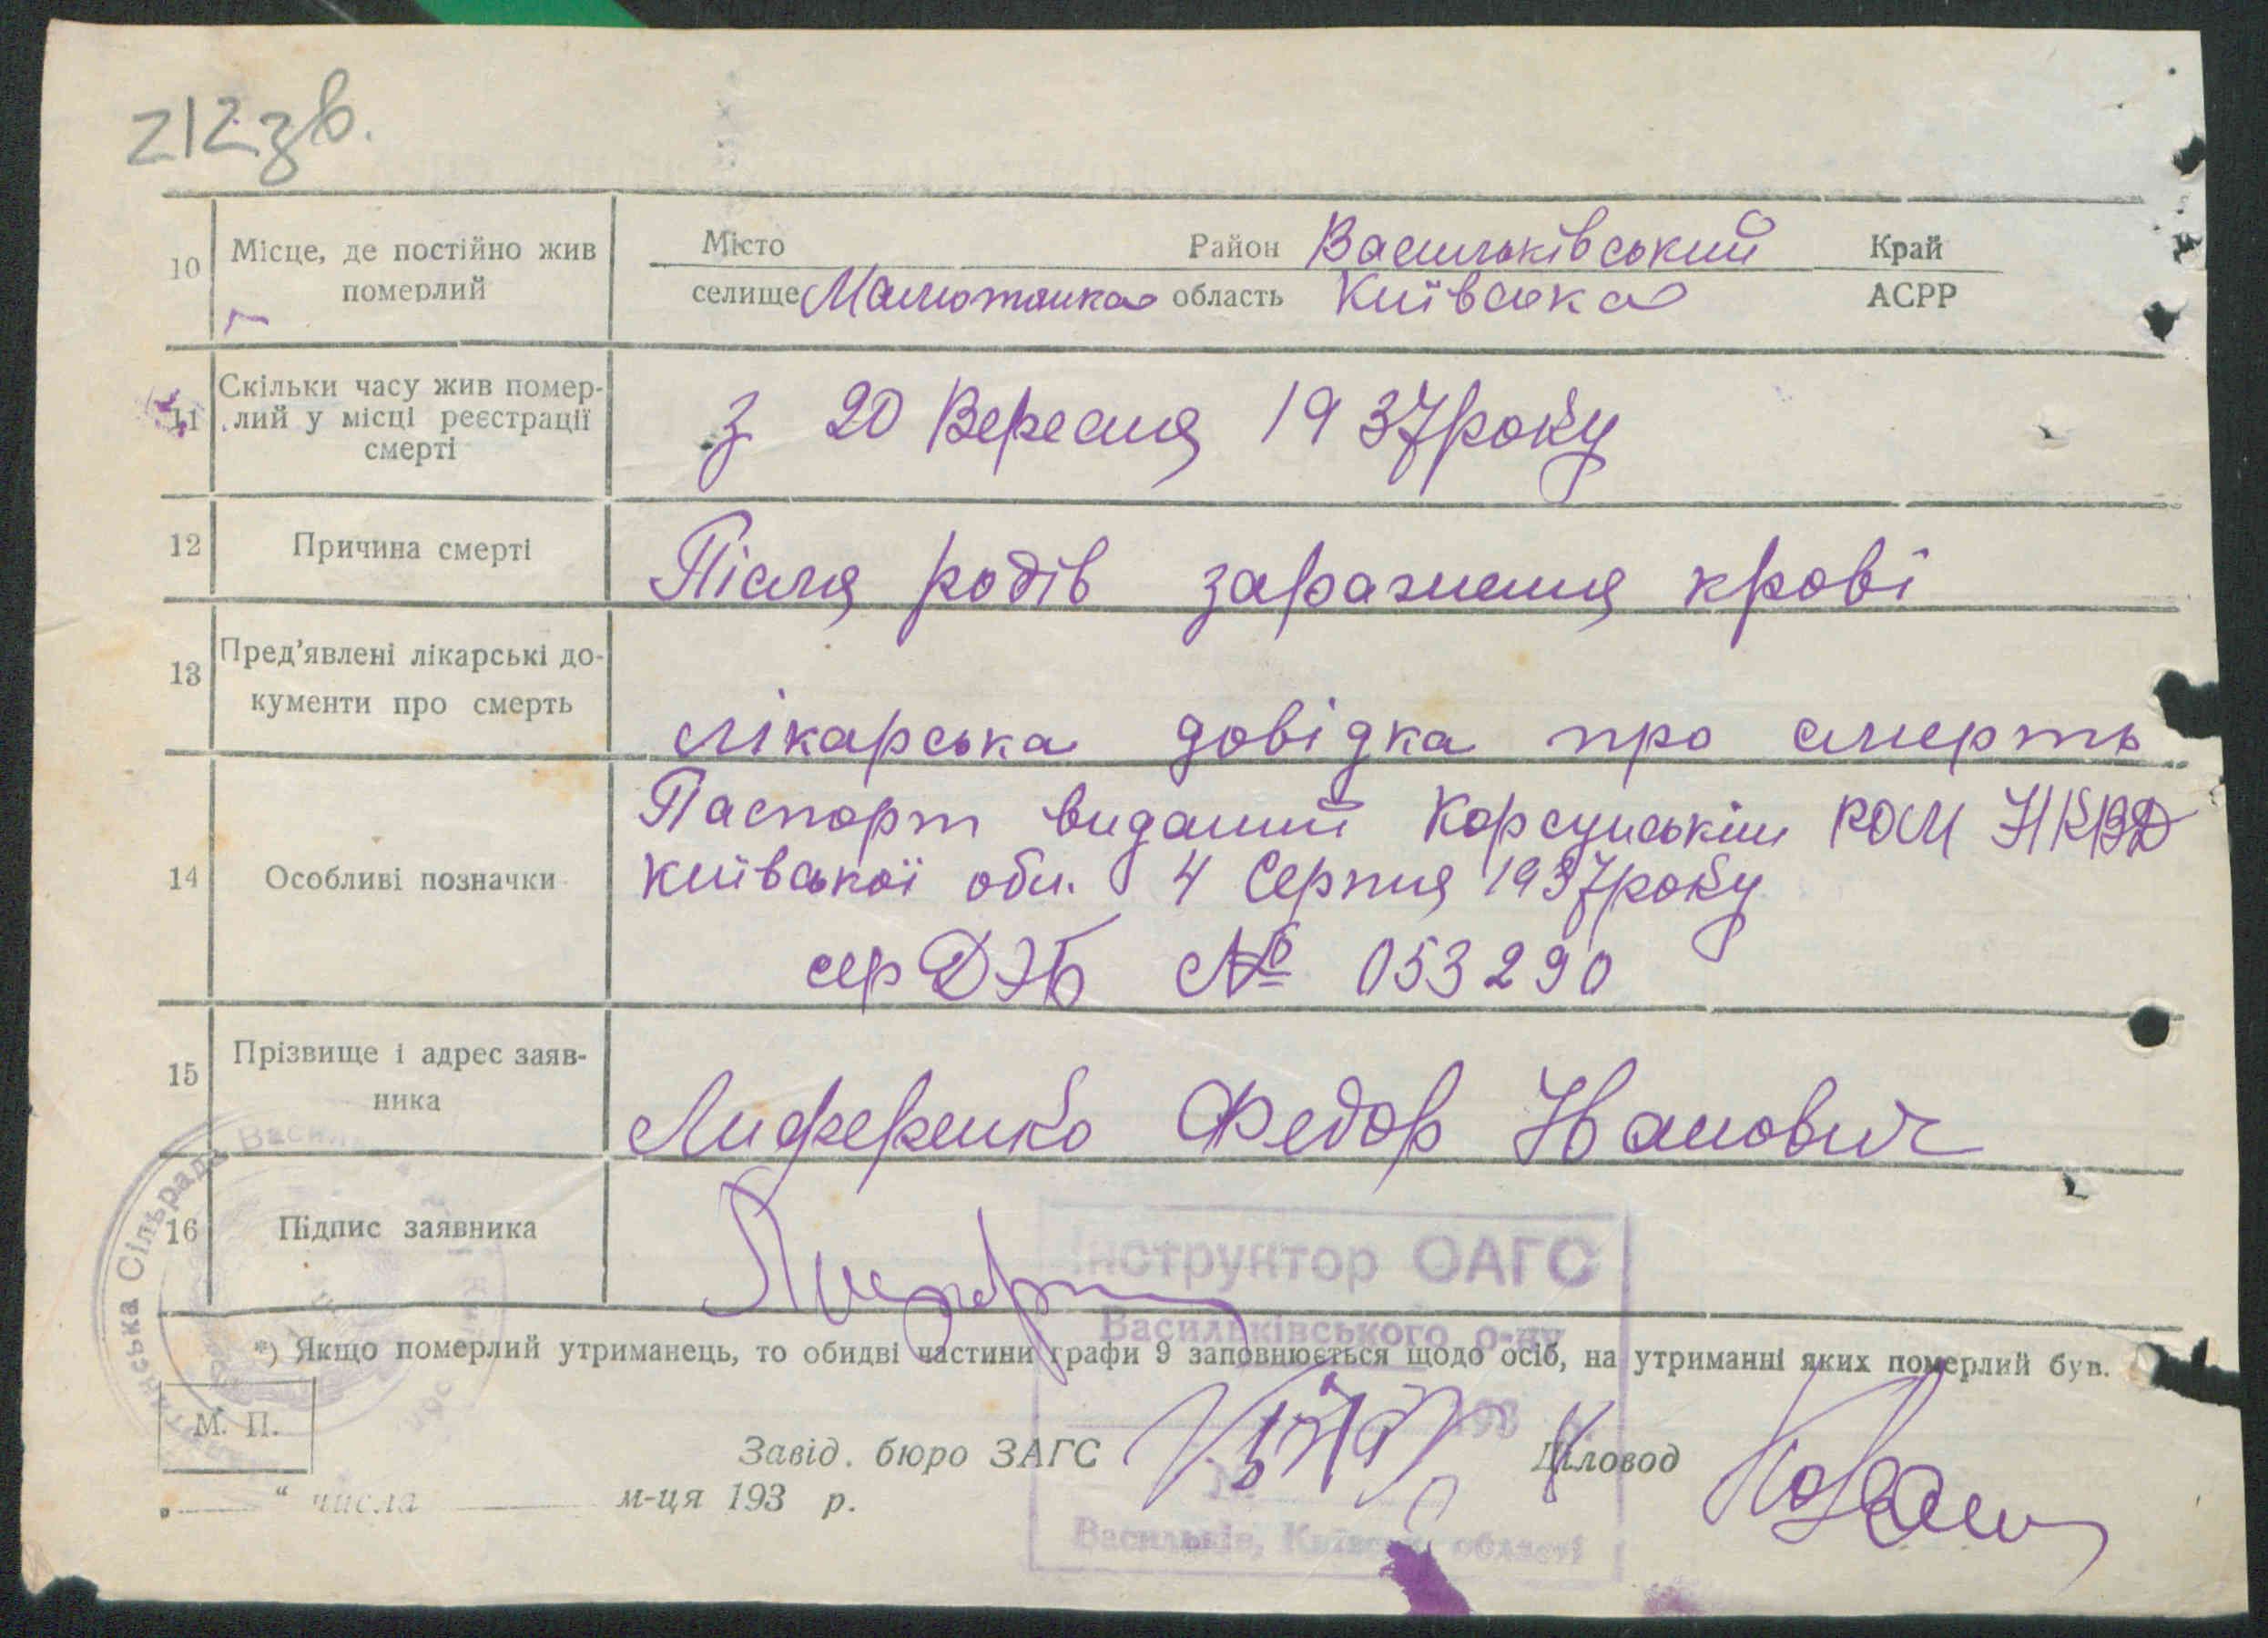 212 зв.
10 Місце, де постійно жив померлий
Місто Район Васильківський Край
селище Малютянка область Київська АСРР
11 Скільки часу жив помер-
лий у місці реєстрації
смерті
з 20 Вересня 1937 року
12 Причина смерті Після родів зараження крові
13 Пред'явлені лікарські до-
кументи про смерть
лікарська довідка про смерть
14 Особливі позначки
Паспорт виданий Корсунськім РОМ НКВД
Київської обл. 4 Серпня 1937 року
сер ДЭБ № 053290
15 Прізвище і адрес заяв-
ника
Лиференко Федор Иванович
16 Підпис заявника
Інструктор ОАГС
Васильківського р-ну
193 р.
№
Васильків, Київськ. області
Сільрада Васил
*) Якщо померлий утриманець, то обидві частини графи 9 заповнюється щодо осіб, на утриманні яких померлий був.
М. П.
Завід. бюро ЗАГС Діловод
„ “ числа м-ця 193 р.